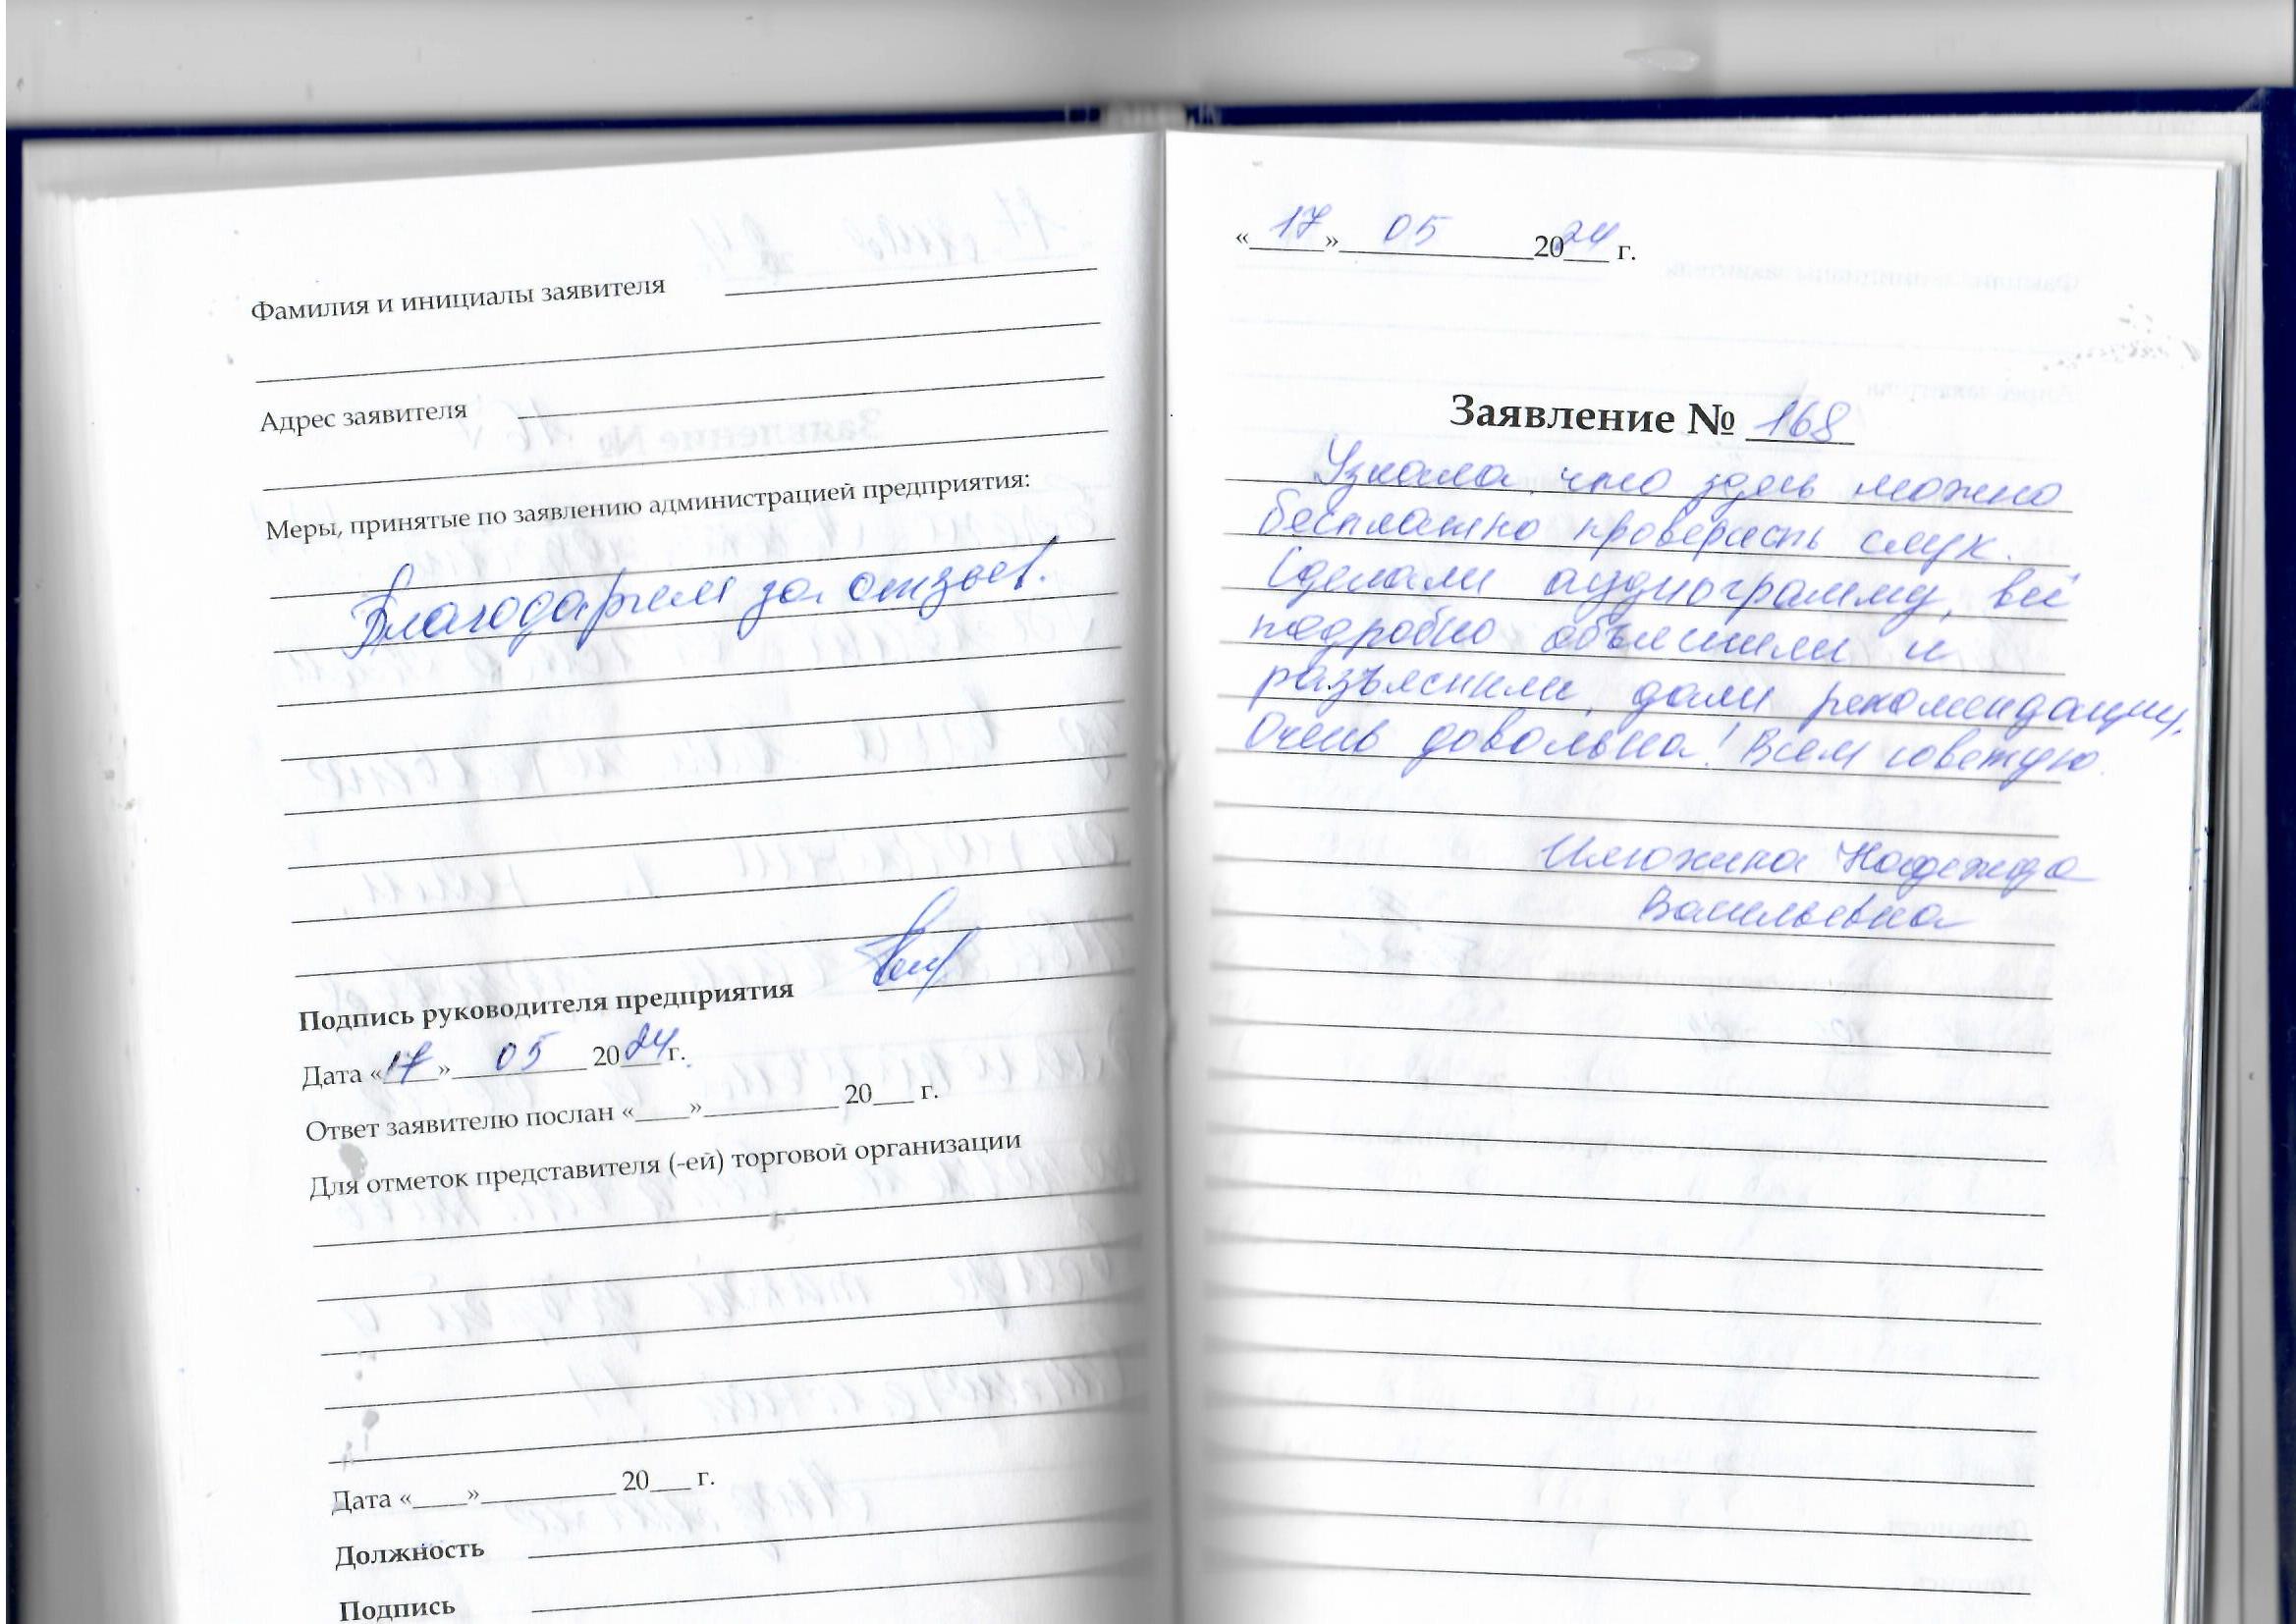 Фамилия и инициалы заявителя
Адрес заявителя
Меры, принятые по заявлению администрацией предприятия:
Благодарим за отзыв.
Подпись руководителя предприятия
Дата «17» 05 2024 г.
Ответ заявителю послан «____»__________ 20___ г.
Для отметок представителя (-ей) торговой организации
Дата «____»__________ 20___ г.
Должность
Подпись
«17» 05 2024 г.
Заявление № 168
Узнала, что здесь можно
бесплатно проверить слух.
Сделали аудиограмму, всё
подробно объяснили и
разъяснили, дали рекомендации.
Очень довольна! Всем советую
Надежда
Васильевна